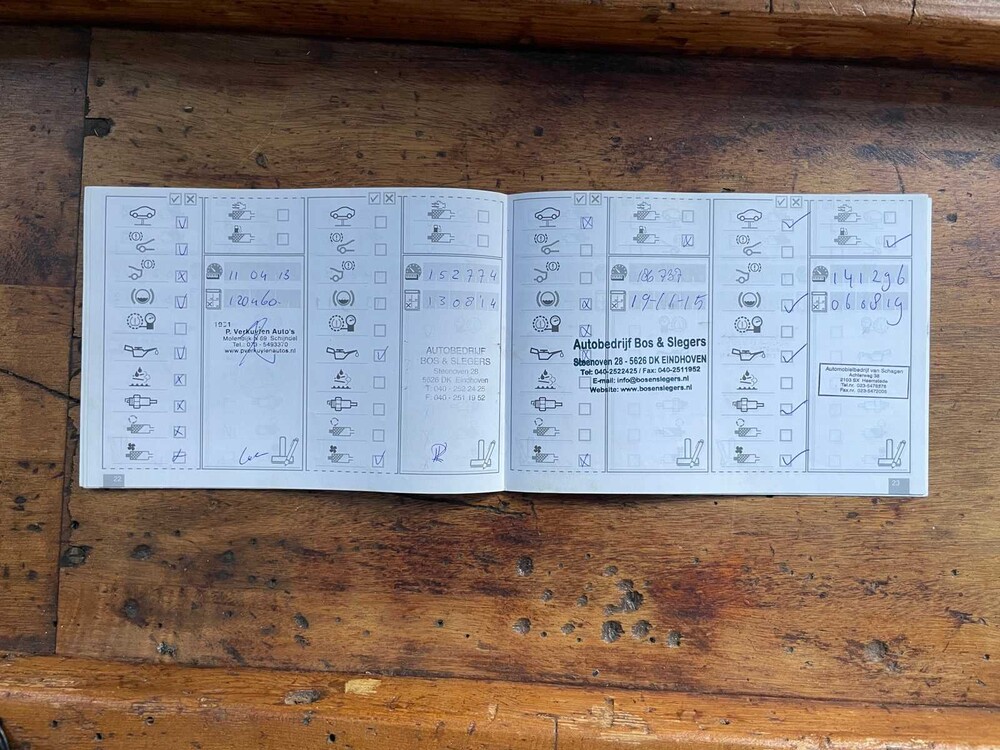 11 04 13
120460.-
1931
P. Verkuylen Auto's
Molendijk N.69 Schijndel
Tel.: 073 - 5493370
www.pverkuylenautos.nl
22
152774
130814
AUTOBEDRIJF
BOS & SLEGERS
Steenoven 28
5626 DK Eindhoven
T: 040 - 252 24 25
F: 040 - 251 19 52
186737
19-6-15
Autobedrijf Bos & Slegers
Steenoven 28 - 5626 DK EINDHOVEN
Tel: 040-2522425 / Fax: 040-2511952
E-mail: info@bosenslegers.nl
Website: www.bosenslegers.nl
141296
060819
Automobielbedrijf van Schagen
Achterweg 38
2103 SX Heemstede
Tel.nr. 023-5478378
Fax.nr. 023-5472006
23